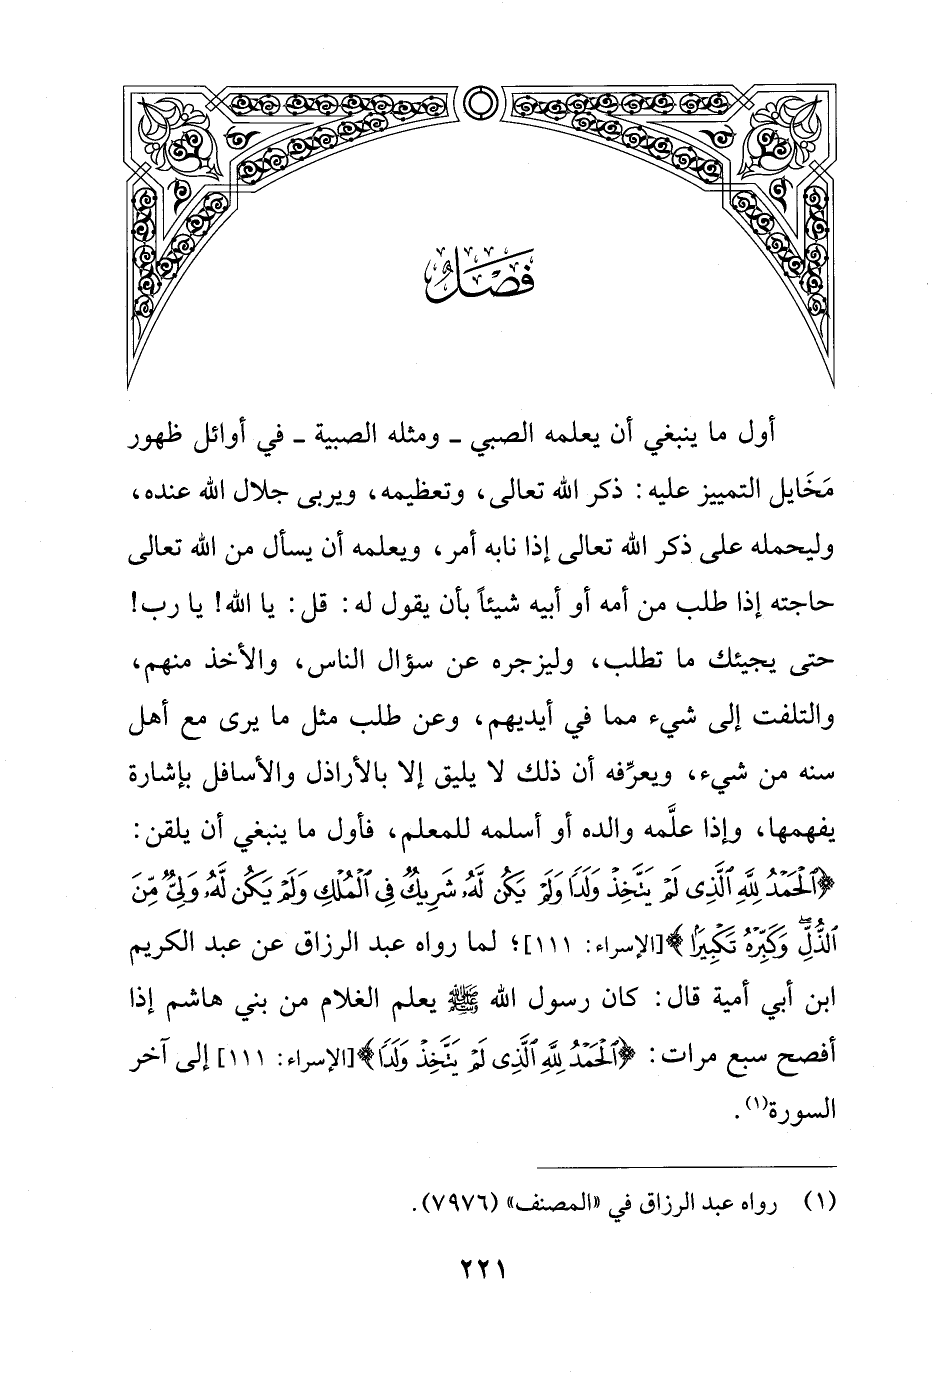 فَصْلٌ
أول ما ينبغي أن يعلمه الصبي ـ ومثله الصبية ـ في أوائل ظهور
مَخَايل التمييز عليه: ذكر الله تعالى، وتعظيمه، ويربى جلال الله عنده،
وليحمله على ذكر الله تعالى إذا نابه أمر، ويعلمه أن يسأل من الله تعالى
حاجته إذا طلب من أمه أو أبيه شيئاً بأن يقول له: قل: يا الله! يا رب!
حتى يجيئك ما تطلب، وليزجره عن سؤال الناس، والأخذ منهم،
والتلفت إلى شيء مما في أيديهم، وعن طلب مثل ما يرى مع أهل
سنه من شيء، ويعرِّفه أن ذلك لا يليق إلا بالأراذل والأسافل بإشارة
يفهمها، وإذا علَّمه والده أو أسلمه للمعلم، فأول ما ينبغي أن يلقن:
﴿ٱلْحَمْدُ لِلَّهِ ٱلَّذِى لَمْ يَتَّخِذْ وَلَدًا وَلَمْ يَكُن لَّهُۥ شَرِيكٌ فِى ٱلْمُلْكِ وَلَمْ يَكُن لَّهُۥ وَلِىٌّ مِّنَ
ٱلذُّلِّ ۖ وَكَبِّرْهُ تَكْبِيرًۢا﴾[الإسراء: ١١١]؛ لما رواه عبد الرزاق عن عبد الكريم
ابن أبي أمية قال: كان رسول الله ﷺ يعلم الغلام من بني هاشم إذا
أفصح سبع مرات: ﴿ٱلْحَمْدُ لِلَّهِ ٱلَّذِى لَمْ يَتَّخِذْ وَلَدًا﴾[الإسراء: ١١١] إلى آخر
السورة(١).
(١) رواه عبد الرزاق في «المصنف» (٧٩٧٦).
٢٢١